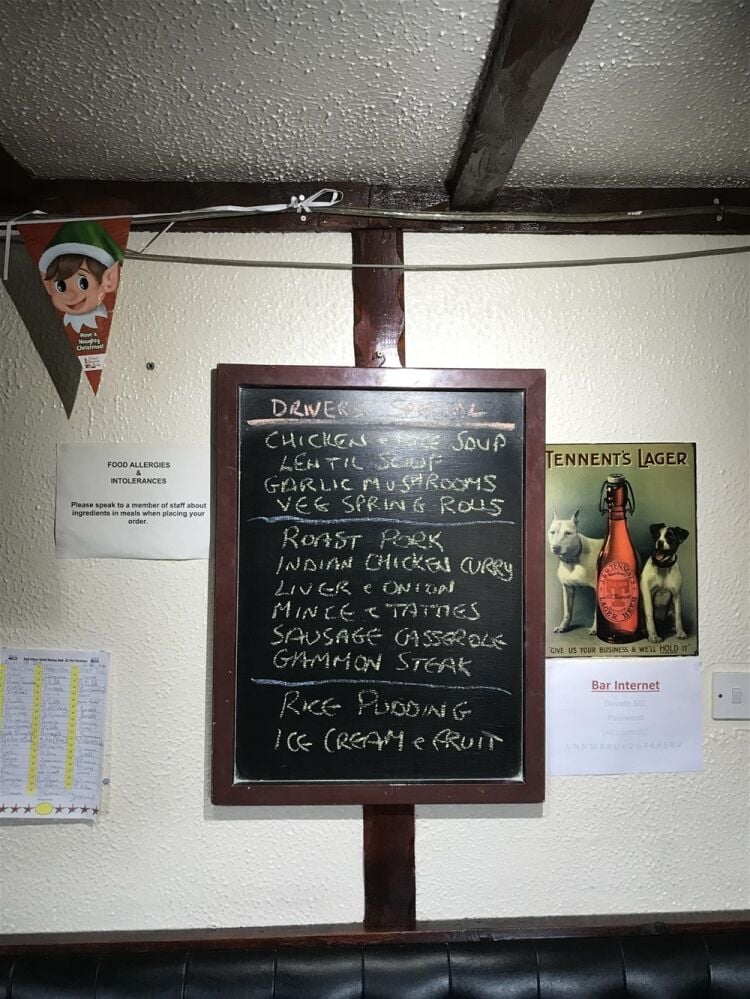 Have a
Naughty
Christmas!
FOOD ALLERGIES
&
INTOLERANCES
Please speak to a member of staff about
ingredients in meals when placing your
order.
DRIVERS SPECIAL
CHICKEN & RICE SOUP
LENTIL SOUP
GARLIC MUSHROOMS
VEG SPRING ROLLS
ROAST PORK
INDIAN CHICKEN CURRY
LIVER & ONION
MINCE & TATTIES
SAUSAGE CASSEROLE
GAMMON STEAK
RICE PUDDING
ICE CREAM & FRUIT
TENNENT'S LAGER
J & R TENNENT'S
LAGER BEER
"GIVE US YOUR BUSINESS & WE'LL HOLD IT"
Bar Internet
Password